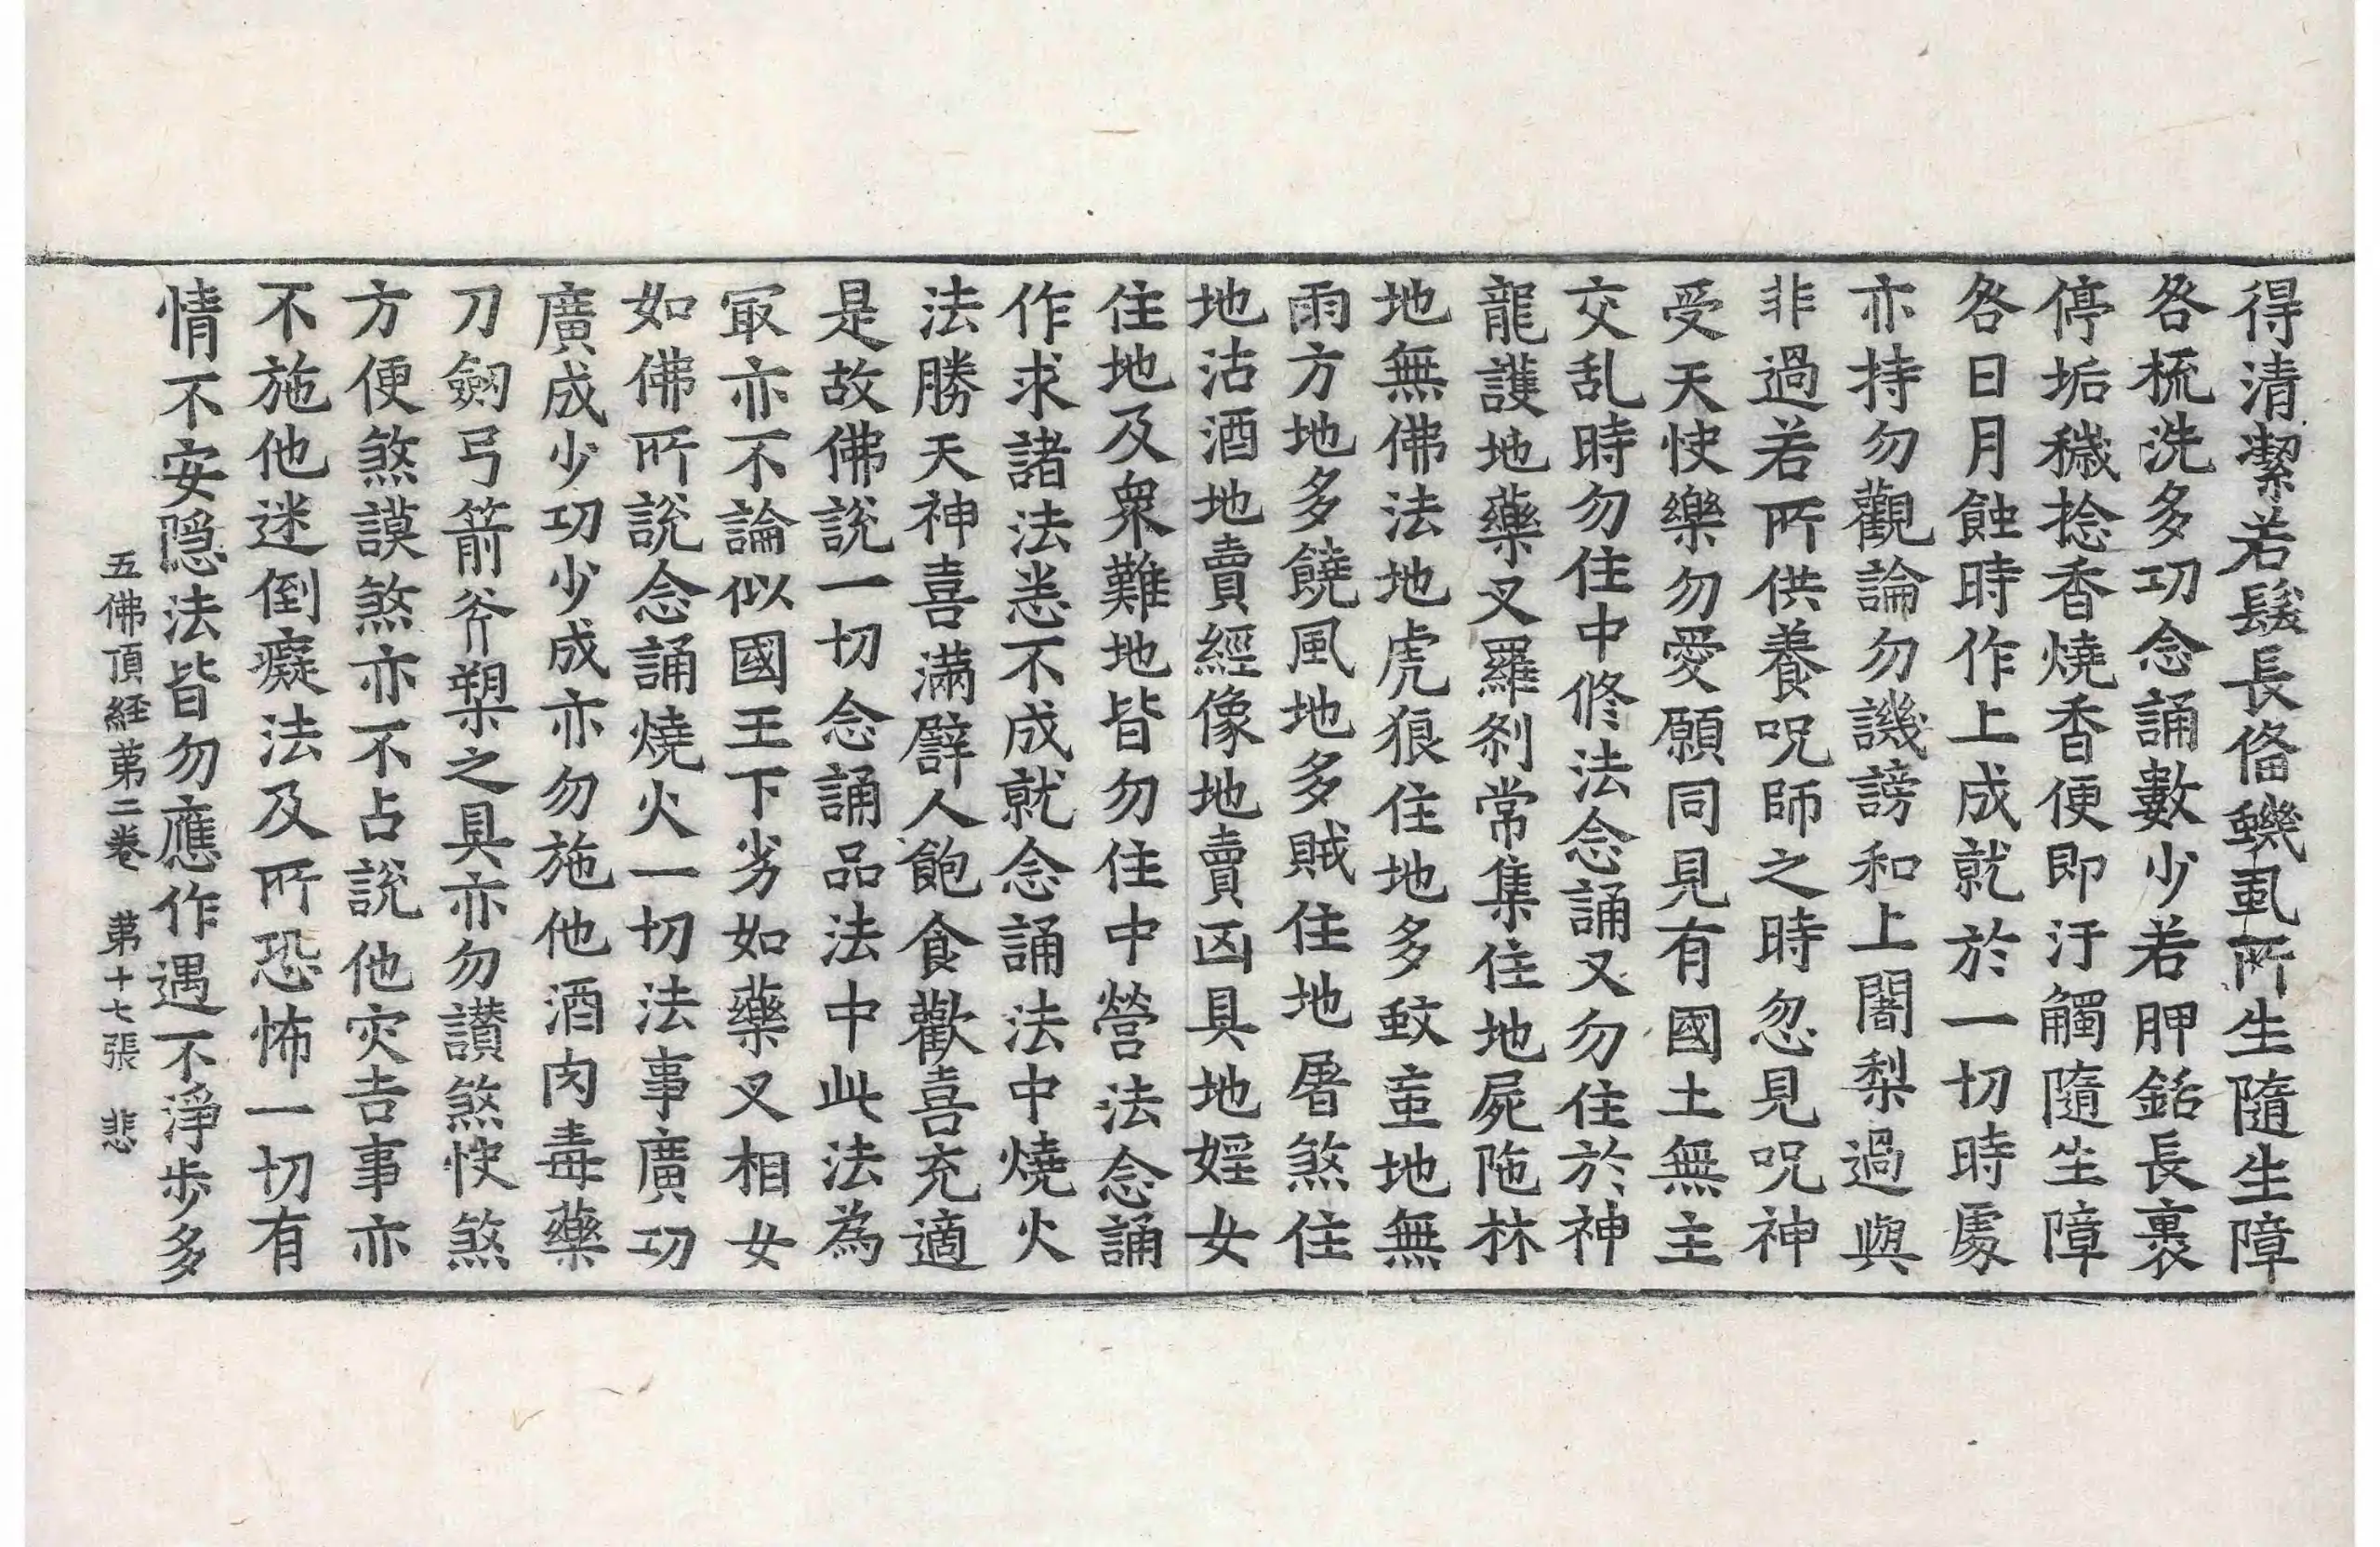 得清潔若髮長俻蟣虱所生隨生障
各梳洗多功念誦數少若胛鉊長裹
停垢穢捻香燒香便即汙觸隨生障
各日月蝕時作上成就於一切時處
亦持勿觀論勿譏謗和上闍梨過與
非過若所供養呪師之時忽見呪神
受天快樂勿愛願同見有國土無主
交乱時勿住中修法念誦又勿住於神
龍護地藥叉羅刹常集住地屍陁林
地無佛法地虎狼住地多蚊䖝地無
雨方地多饒風地多賊住地屠煞住
地沽酒地賣經像地賣凶具地婬女
住地及衆難地皆勿住中營法念誦
作求諸法悉不成就念誦法中燒火
法勝天神喜滿譬人飽食歡喜充適
是故佛說一切念誦品法中此法為
冣亦不論似國王下劣如藥叉相女
如佛所說念誦燒火一切法事廣功
廣成少功少成亦勿施他酒肉毒藥
刀劒弓箭斧槊之具亦勿讃煞快煞
方便煞謨煞亦不占說他灾吉事亦
不施他迷倒癡法及所恐怖一切有
情不安隱法皆勿應作遇不淨步多
五佛頂経苐二卷　苐十七張　悲